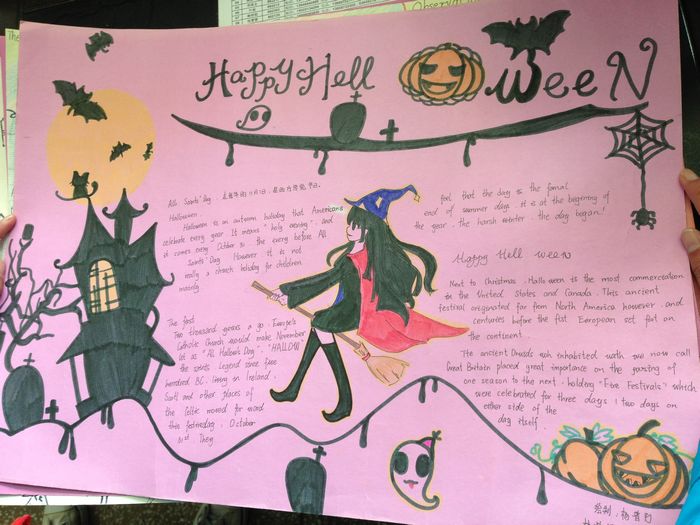 Observa
The
Happy Hell ween
All Saints' Day
Halloween.
Halloween is an autumn holiday that Americans
celebrate every year. It means "holy evening", and
it comes every October 31, the every before All
Saints' Day. However it is not
really a church holiday for children
mainly.
The first
Two thousand years a go, Europe's
Catholic Church would make November
1st as "All Hallows Day". "HALLOW"
the spirits. Legend since five
hundred BC, living in Ireland,
Scotl and other places of
the Celtic moved for ward
this festivaley, October
31st. They
feel that the day is the formal
end of summer days, it is at the beginning of
the year, the harsh winter, the day began!
Happy Hell ween
Next to Christmas, Hallo ween is the most commercation
in the United States and Canada. This ancient
festival originated far from North America however, and
centuries before the fist European set foot on
the continent.
The ancient Druids who inhabited wath we now call
Great Britain placed great importance on the passing of
one season to the next, holding "Fire Festivals" which
were celebrated for three days: two days on
either side of the
day itself.
绘制:杨